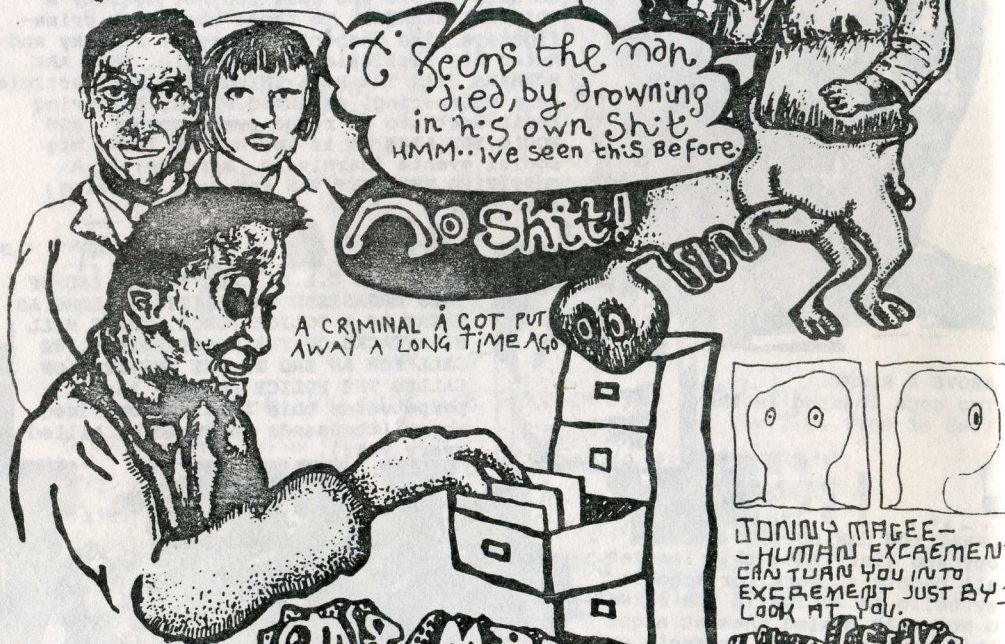 It Seems the man
died, by drowning
in his own Shit
HMM.. ive seen this Before.
No Shit!
A CRIMINAL A GOT PUT
AWAY A LONG TIME AGO
JONNY MAGEE-
-HUMAN EXCREMEN
CAN TURN YOU INTO
EXCREMENT JUST BY
LOOK AT YOU.